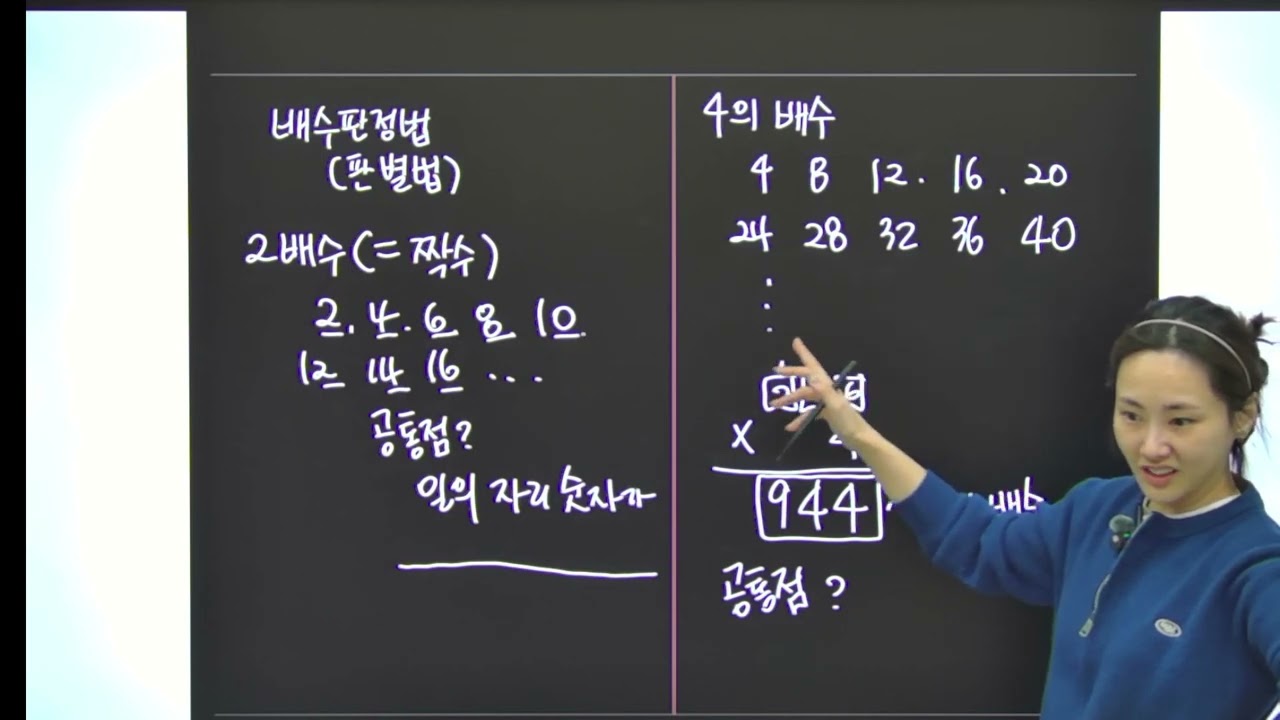 배수판정법
(판별법)
2배수(= 짝수)
2. 4. 6 8 10
12 14 16 ...
공통점?
일의 자리 숫자가
4의 배수
4 8 12. 16. 20
24 28 32 36 40
X 4
944
배수
공통점?